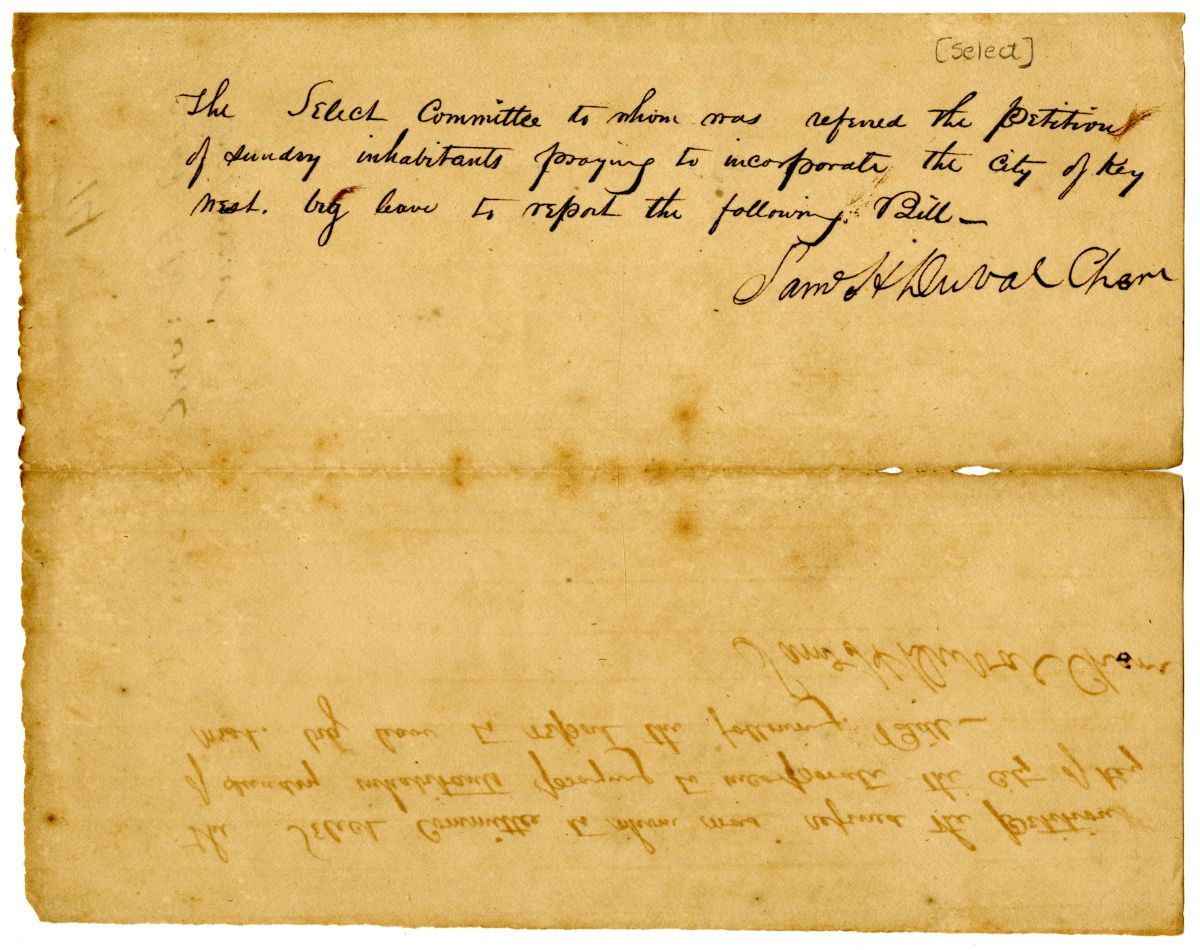 [Select]
The Select Committee to whom was referred the petition
of sundry inhabitants praying to incorporate the City of Key
West. beg leave to report the following. Bill—
Saml H Duval Chm